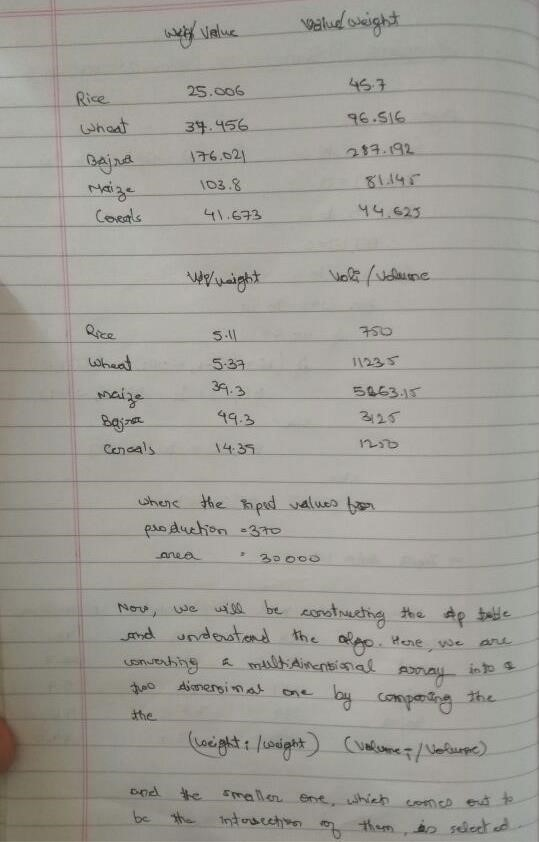 Value Value/weight
Rice 25.006 45.7
Wheat 37.456 96.516
Bajra 176.021 287.192
Maize 103.8 81.145
Cereals 41.673 44.625
/weight /Volume
Rice 5.11 750
Wheat 5.37 11235
Maize 39.3 5263.15
Bajra 49.3 3125
Cereals 14.35 1250
where the input values for
production = 370
area = 30000
Now, we will be constructing the dp table
and understand the algo. Here, we are
converting a multidimentional array into a
two dimensional one by comparing the
the
(weight i /weight) (Volume i /Volume)
and the smaller one, which comes out to
be the intersection of them, is selected.